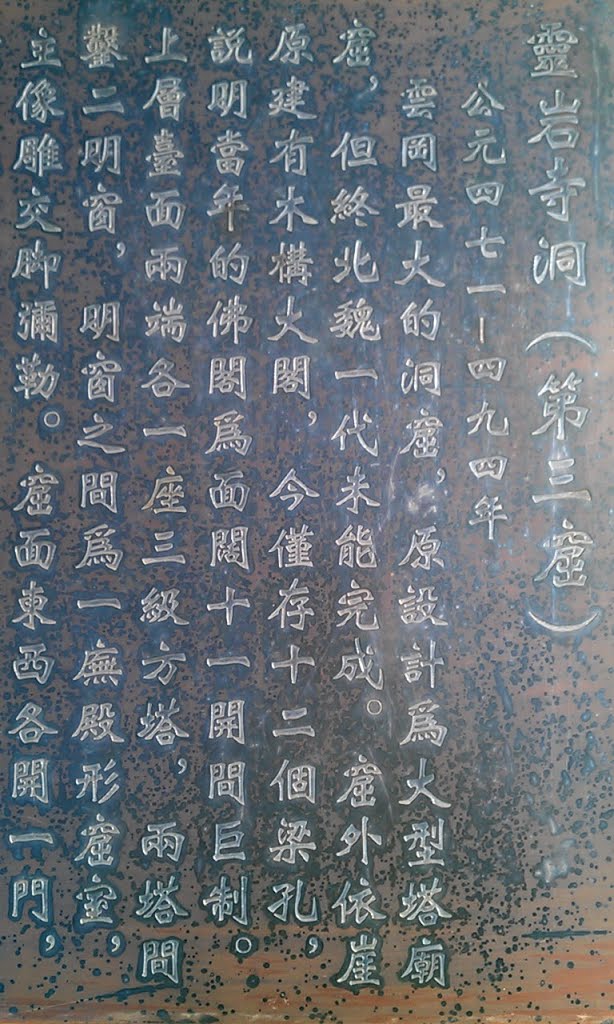 靈岩寺洞(第三窟)
公元四七一—四九四年
雲岡最大的洞窟,原設計爲大型塔廟
窟,但終北魏一代未能完成。窟外依崖
原建有木構大閣,今僅存十二個梁孔,
説明當年的佛閣爲面闊十一開間巨制。
上層臺面兩端各一座三級方塔,兩塔間
鑿二明窗,明窗之間爲一廡殿形窟室,
主像雕交脚彌勒。窟面東西各開一門,